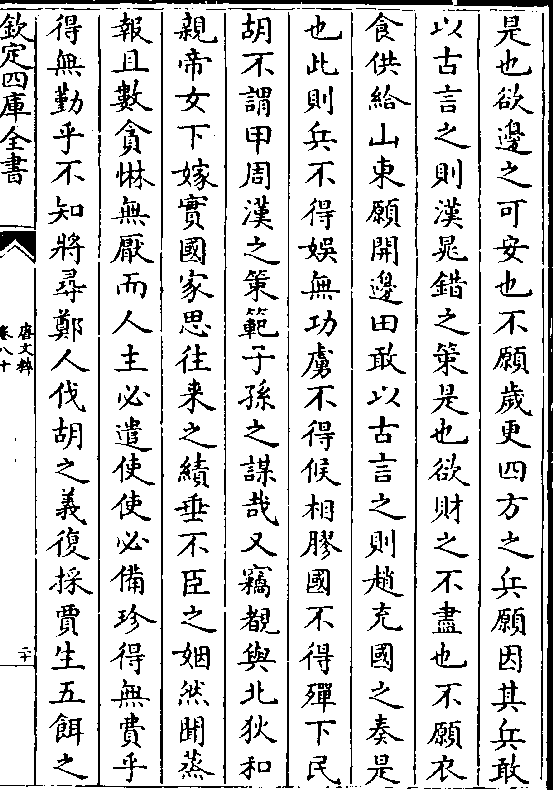 是也欲邊之可安也不願歲更四方之兵願因其兵敢
以古言之則漢晁錯之策是也欲財之不盡也不願衣
食供給山東願開邊田敢以古言之則趙充國之奏是
也此則兵不得娯無功虜不得候相膠國不得殫下民
胡不謂甲周漢之策範子孫之謀哉又竊覩與北狄和
親帝女下嫁實國家思往来之績垂不臣之姻然聞蒸
報且數貪惏無厭而人主必遣使使必備珍得無費乎
得無勤乎不知將尋鄭人伐胡之義復採賈生五餌之
欽定四庫全書
唐文粹
卷八十
二十